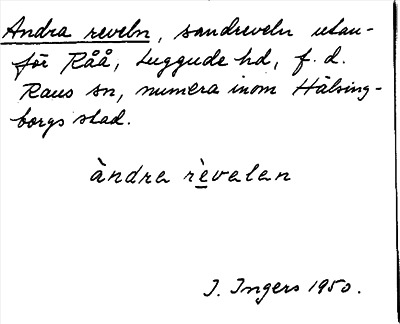 Andra reveln, sandreveln utan-
för Råå, Luggude hd, f. d.
Raus sn, numera inom Hälsing-
borgs stad.
àndra rèvelen
I. Ingers 1950.